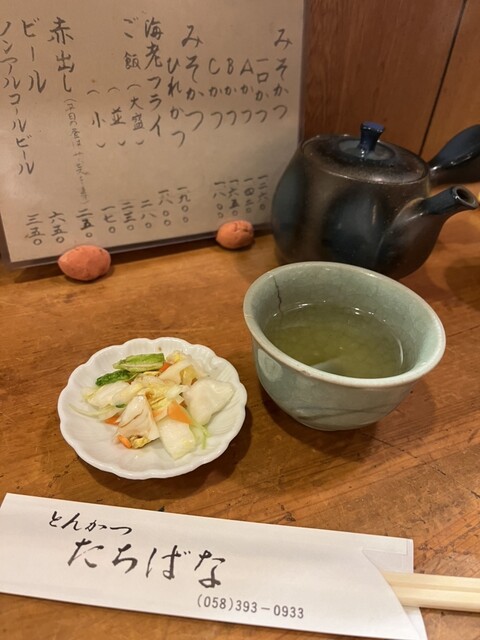 みそかつ
一口かつ
Aかつ
Bかつ 一六五〇
Cかつ
みそかつ
ひれかつ
海老フライ
ご飯(大盛) 二八〇
(並) 二三〇
(小) 一七〇
赤出し 二五〇
ビール 六五〇
ノンアルコールビール 三五〇
とんかつ
たちばな
(058)393-0933